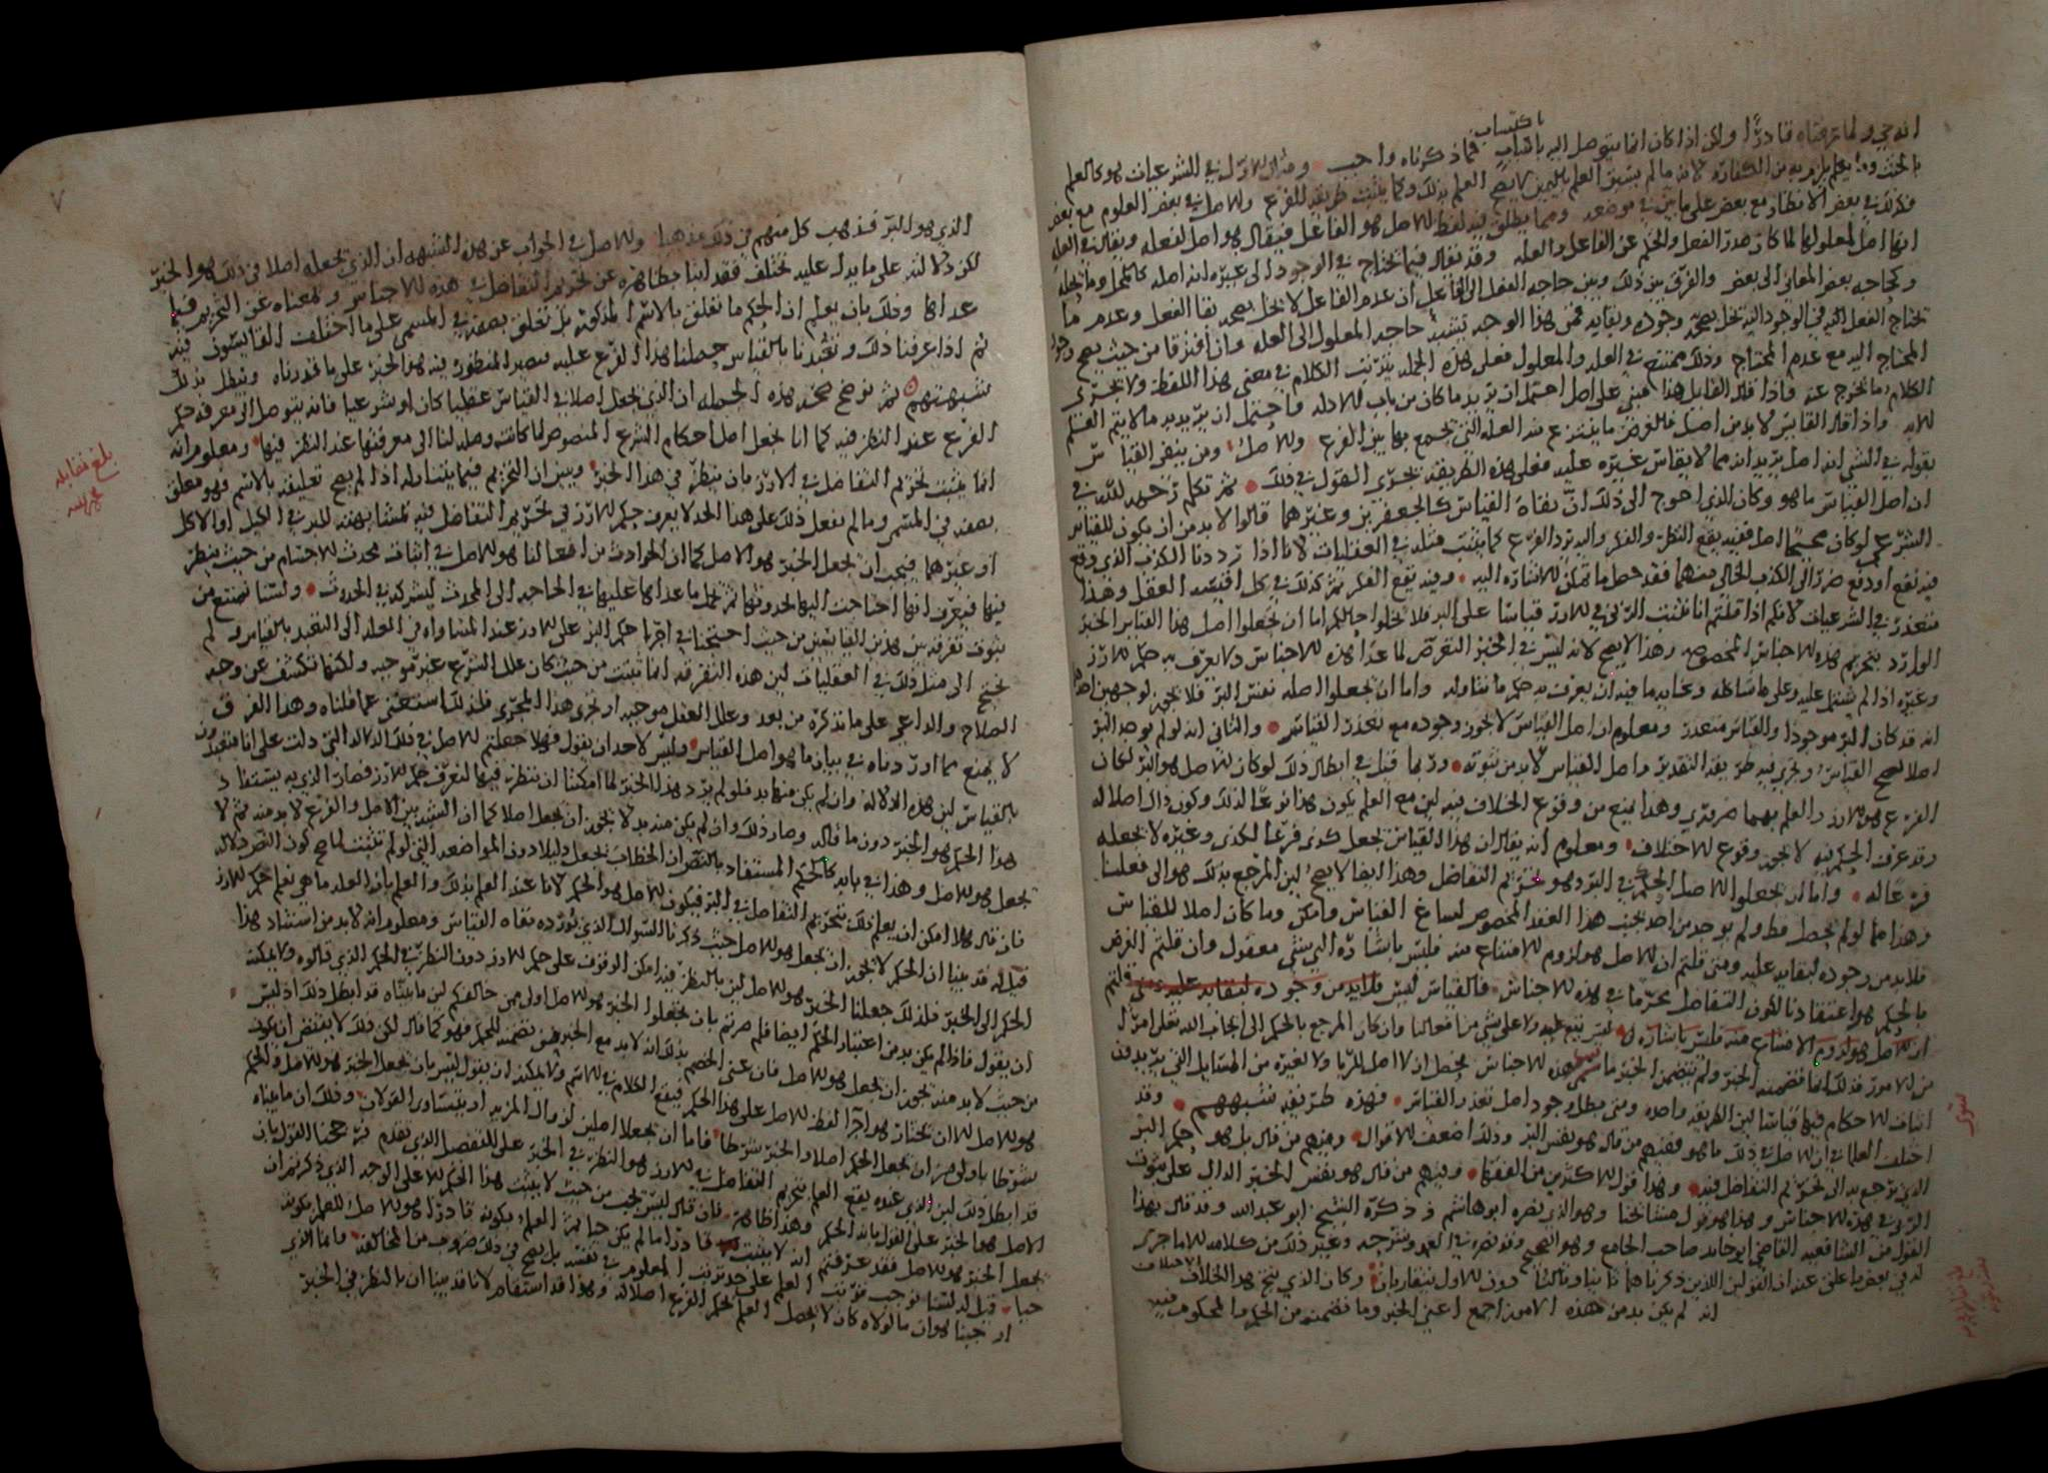 انه حي ولما عرفناه قادرًا ولكن اذا كان انما يتوصل اليه باكتساب فما ذكرناه واجب ومثال الاول في الشرعيات هو كالعلم
بالحنث وما يعلم يلزم به من الكفارة لانه ما لم يسبق العلم باليمين لا يصح العلم بذلك وكما يثبت طريقه للفرع والاصل في بعض العلوم مع بعض
فكذلك في بعض الانظار مع بعض على ما بين في موضعه ومما يطلق فيه لفظ الاصل هو الفاعل فيقال هو اصل لفعله ويقال في العلة
انها اصل لمعلولها لما كان صدر الفعل والحكم عن الفاعل والعلة وقد يقال فيما يحتاج في الوجود الى غيره انه اصله كالمحل وما يحله
وكحاجة بعض المعاني الى بعض والفرق بين ذلك وبين حاجة الفعل الى الفاعل ان عدم الفاعل لا يخل بصحة بقا الفعل وعدم ما
يحتاج الفعل اليه في الوجود انه يخل بصحة وجوده وبقايه فمن هذا الوجه يشبه حاجة المعلول الى العلة وان افترقا من حيث يصح وجود
المحتاج اليه مع عدم المحتاج وذلك ممتنع في العلة والمعلول فعلى هذه الجملة يترتب الكلام في معنى هذا اللفظة ولا يخرّى
الكلام وما يخرج عنه فاذا قال القايل هذا مبني على اصل احتمل ان يريد ما كان من باب الادلة واحتمل ان يريد به ما لا يتم القسم
الا به واذا قال القايس لا بد من اصل فالغرض ما ينتزع منه العلة التي يجمع بها بين الفرع والاصل ومن ينفي القياس
بقوله في الشي انه اصل يريد انه مما لا يقاس غيره عليه فعلى هذه الطريقة يجري القول في ذلك ثم تكلم رحمه الله في
ان اصل القياس ما هو وكان الذي احوج الى ذلك ان نفاة القياس كالجعفرين وغيرهما قالوا لا بد من ان يكون للقياس
الشرعي لو كان صحيحًا اصل فيه يقع النظر والفكر واليه يرد الفرع كما يثبت مثله في العقليات لانا اذا رددنا الكذب الذي وقع
فيه نفع او دفع ضرر الى الكذب الخالي منهما فقد حصل ما تمكن الاشارة اليه وفيه يقع الفكر ثم كذلك في كل اقيسة العقل وهذا
متعذر في الشرعيات لانكم اذا قلتم انا نثبت الربا في الارز قياسا على البر فلا يخلوا حالكم اما ان تجعلوا اصل هذا القياس الخبر
الوارد بتحريم هذه الاجناس المخصوصة وهذا لا يصح لانه ليس في الخبر التعرض لما عدا هذه الاجناس ولا يعرف به حكم الارز
وغيره اذا لم يشتمل عليه وعلى ما شاكله وغاية ما فيه ان يعرف به حكم ما تناوله واما ان تجعلوا اصله نفس البر فلا يجوز لوجهين احدهما
انه قد كان البر موجودا والقياس متعذر ومعلوم ان اصل القياس لا يجوز وجوده مع تعذر القياس والثاني انه لو لم يوجد البر
اصلا لصح القياس ويجري فيه طريقة التقدير واصل القياس لا بد من ثبوته وربما قيل في ابطال ذلك لو كان الاصل هو البر لكان
الفرع هو الارز والعلم بهما ضروري وهذا يمنع من وقوع الخلاف فيه لمن مع العلم يكون هذا فرعًا لذلك وكون ذاك اصلا له
وقد عرفت الحكم فيه لا يجوز وقوع الاختلاف ومعلوم انه يقال ان هذا القياس يجعل كذى فرعًا لكذى وغيره لا يجعله
فرعا له واما ان تجعلوا الاصل الحكم في البر وهو تحريم التفاضل وهذا ايضا لا يصح لان المرجع بذلك هو الى فعلنا
وهذا مما لو لم يحصل قط ولم يوجد من احد تجنب هذا العقد المخصوص لساغ القياس وامكن وما كان اصلا للقياس
فلا بد من وجوده لنقايد عليه ومتى قلتم ان الاصل هو لزوم الامتناع منه فليس باشارة الى شي معقول وان قلتم الغرض
بالحكم هو اعتقادنا لكون التفاضل محرما في هذه الاجناس فالقياس ليس فلا بد من وجوده لنقايد عليه ومتى قلتم
ان الاصل هو لزوم الامتناع منه فليس باشارة الى ليس نبع عليه ولا على شي من افعالنا وان كان المرجع بالحكم الى ايجاب الله تعلى امرًا
من الامور فذلك انما تضمنه الخبر ولم يتضمن الخبر ما سوى هذه الاجناس يحصل ان لا اصل للربا ولا لغيره من المسايل التي يريدون
اثبات الاحكام فيها قياسًا لان الطريقة واحدة ومتى بطل وجود اصل تعذر القياس فهذه طريقة شبههم وقد
اختلف العلما في ان الاصل في ذلك ما هو فمنهم من قال هو نفس البر وذلك اضعف الاقوال ومنهم من قال بل هو حكم البر
الذي يرجع به الى تحريم التفاضل فيه وهذا قول الاكثرين من الفقها ومنهم من قال هو نفس الخبر الدال على ثبوت
الربا في هذه الاجناس وهذا هو قول مشايخنا وهو الذي نصره ابو هاشم وذكره الشيخ ابو عبد الله وقد قال بهذا
القول من الشافعية القاضي ابو حامد صاحب الجامع وهو الصحيح وقد نصره في العمد وشرحه وغير ذلك من كلامه الا ما جرى
له في بعض ما علق عنه ان القولين اللذين ذكرناهما ثانيا وثالثا دون الاول يتقاربان وكان الذي ينتج هذا الخلاف
انه لم يكن بد من هذه الامور اجمع اعني الخبر وما تضمنه من الحكم والمحكوم فيه
سؤال
٧
الذي هو البر فذهب كل منهم في ذلك مذهبا والاصل في الجواب عن هذه الشبهة ان الذي نجعله اصلا في ذلك هو الخبر
لكن دلالته على ما يدل عليه تختلف فقد انبا بظاهره عن تحريم التفاضل في هذه الاجناس وبمعناه عن التحريم فيما
عداها وذلك بان يعلم ان الحكم ما تعلق بالاسم المذكور بل تعلق بصفة في المسمى على ما اختلف القايسون فيه
ثم اذا عرفنا ذلك وتعبدنا بالقياس حملنا هذا الفرع عليه فيصير المنظور فيه هو الخبر على ما قدرناه وتبطل بذلك
شبهتهم ثم نوضح صحة هذه الجملة ان الذي يجعل اصلا في القياس عقليا كان او شرعيا فانه يتوصل الى معرفة حكم
الفرع عند النظر فيه كما انا نجعل اصل احكام الشرع المنصوص لما كانت وصلة لنا الى معرفتها عند النظر فيها ومعلوم انه
انما يثبت تحريم التفاضل في الارز بان ينظر في هذا الخبر ويبين ان التحريم فيما يتناوله اذا لم يصح تعليقه بالاسم فهو معلق
بصفة في المسمى وما لم نفعل ذلك على هذا الحد لا يعرف حكم الارز في تحريم التفاضل فيه لمشابهته للبر في الكيل او الاكل
او غيرهما فيجب ان نجعل الخبر هو الاصل كما ان الحوادث من افعالنا هو الاصل في اثبات محدث الاجسام من حيث ينظر
فيها فيعرف انها احتاجت الينا لحدوثها ثم نحمل ما عداها عليها في الحاجة الى المحدث لشركة في الحدوث ولسنا نمتنع من
ثبوت تفرقة بين هذين القياسين من حيث احتجنا في اجرا حكم البر على الارز عند المساواة في العلة الى التعبد بالقياس ولم
نحتج الى مثل ذلك في العقليات لان هذه التفرقة انما تثبت من حيث كان علل الشرع غير موجبة ولكنها تكشف عن وجه
الصلاح والداعي على ما نذكره من بعد وعلل العقل موجبة او تجري هذا المجرى فلذلك استغنى عما قلناه وهذا الفرق
لا يمنع مما اوردناه في بيان ما هو اصل القياس وليس لاحد ان يقول فهلا جعلتم الاصل في ذلك الدلالة التي دلت على انا متعبدون
بالقياس لان هذه الدلالة وان لم يكن منها بد فلو لم يرد هذا الخبر لما امكننا ان ننظر فيها لنعرف حكم الارز فصار الذي به يستفاد
هذا الحكم هو الخبر دون ما قاله وصار ذلك وان لم يكن منه بد لا يجوز ان يجعل اصلا كما ان الشبه بين الاصل والفرع لا بد منه ثم لا
يجعل هو الاصل وهذا في بابه كالحكم المستفاد بالنص ان الخطاب يجعل دليلا دون المواضعة التي لو لم تثبت لما صح كون النص دلالة
فان قال هلا امكن ان يعلم ذلك بتحريم التفاضل في البر فيكون الاصل هو الحكم لانا عند العلم بذلك والعلم بان العلة ما هي نعلم حكم الارز
قيل له قد بينا ان الحكم لا يجوز ان يجعل هو الاصل حيث ذكرنا السؤال الذي يورده نفاة القياس ومعلوم انه لا بد من استناد هذا
الحكم الى الخبر فلذلك جعلنا الخبر هو الاصل لان بالنظر فيه امكن الوقوف على حكم الارز دون النظر في الحكم الذي قالوه ولا يمكنه
ان يقول فاذا لم يكن بد من اعتبار الحكم ايضا فلم صرتم بان تجعلوا الخبر هو الاصل اولى ممن خالفكم لان ما بيناه قد ابطل ذلك اذ ليس
من حيث لا بد منه يجوز ان يجعل هو الاصل فان عنى الخصم بذلك انه لا بد مع الخبر من تضمنه للحكم فهو كما قال لكن ذلك لا يقتضي ان يكون
هو الاصل الا ان تختار هو اجرا لفظ الاصل على هذا الحكم فيقع الكلام في الاسم ولا يمكنه ان يقول ليس بان يجعل الخبر هو الاصل والحكم
شرطا باولى من ان يجعل الحكم اصلا والخبر شرطا فاما ان يجعلا اصلين لزوال المزية او بتساوى القولان وذلك ان ما بيناه
قد ابطل ذلك لان الذي عنده يقع العلم بتحريم التفاضل في الارز هو النظر في الخبر على التفصل الذي تقدم فترجحنا القول بان
الاصل هو الخبر على القول بانه الحكم وهذا ظاهر فان قال ليس يجب من حيث لا يثبت هذا الحكم الا على الوجه الذي ذكرتم ان
يجعل الخبر هو الاصل فقد عرفتم انه لا يثبت قادرا ما لم يكن حيا ثم العلم بكونه قادرا هو الاصل للعلم بكونه
حيا قيل له لسنا نوجب ترتب العلم على حد ترتب المعلوم في نفسه بل يصح في ذلك ضروب من المخالفة وانما الذي
اوجبنا هو ان ما لولاه كان لا يحصل العلم بحكم الفرع اصلا له وهذا قد استقام لانا قد بينا ان بالنظر في الخبر
بلغ مقابلة